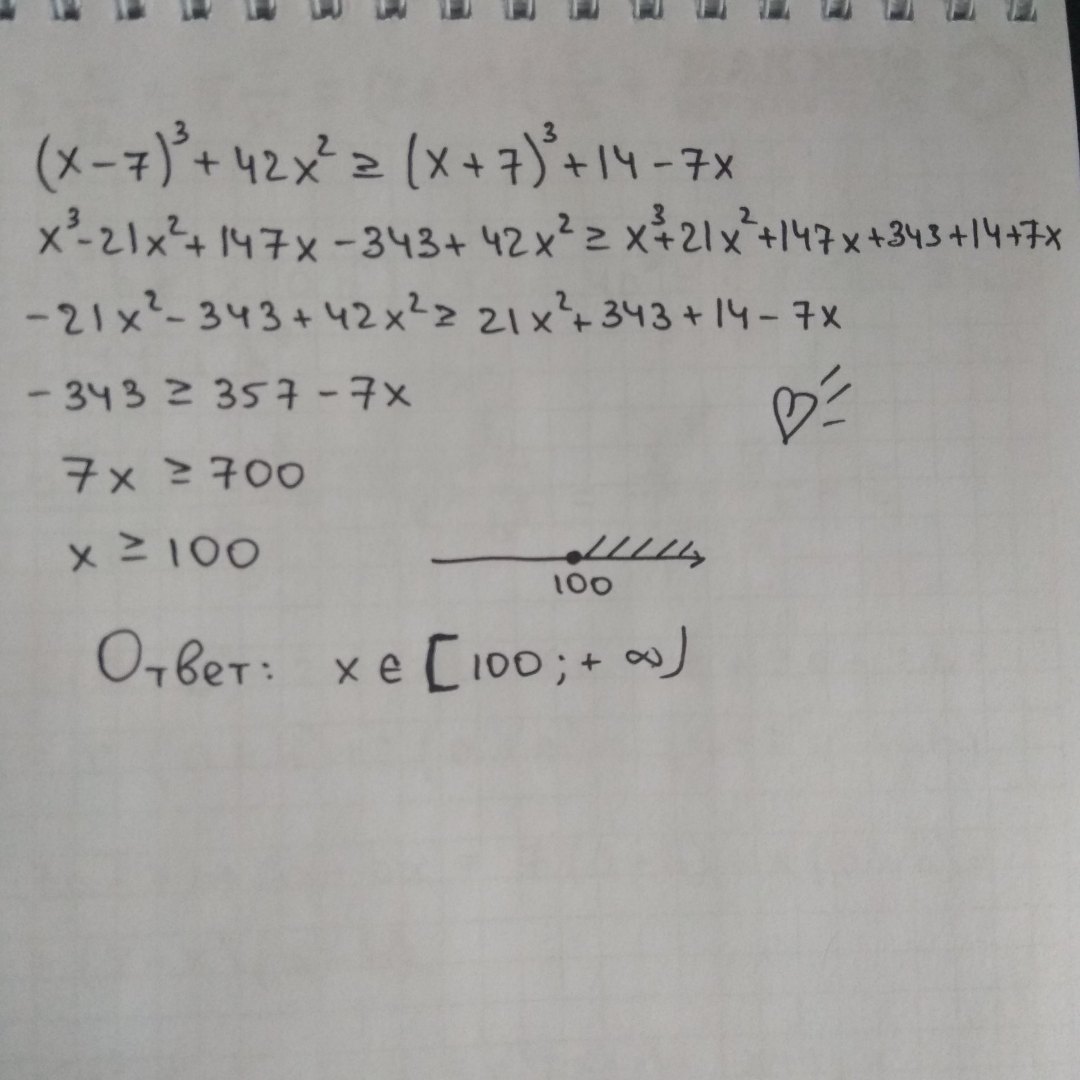 (x-7)³+42x²≥(x+7)³+14-7x
x³-21x²+147x-343+42x²≥x³+21x²+147x+343+14+7x
-21x²-343+42x²≥21x²+343+14-7x
-343≥357-7x
7x≥700
x≥100
100
Ответ: x∈[100;+∞)